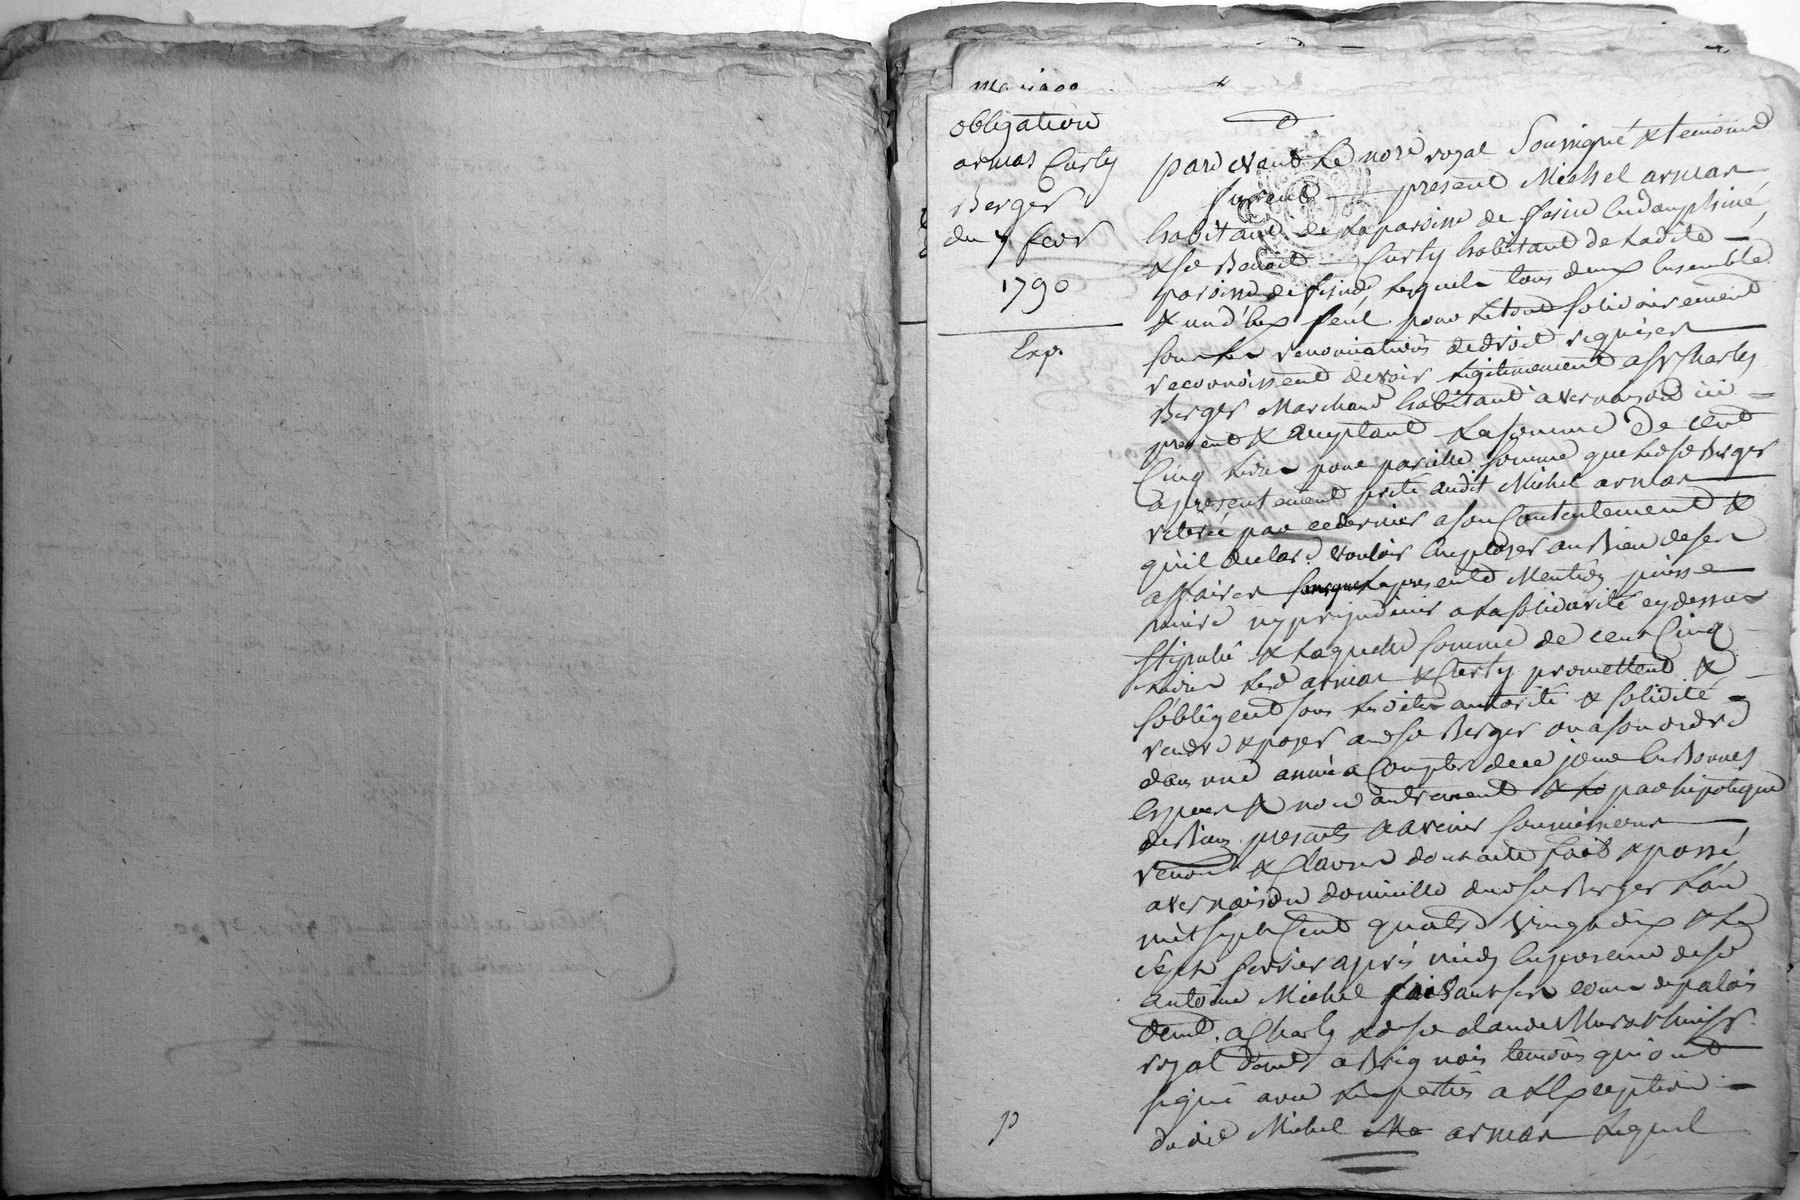 mariage
obligation
armas Curty
Berger
du 7 fevr
1790
Exp.
pardevant Le nore royal Soussigné & temoins
furent present Michel armas
habitant de La paroisse de fesin en dauphiné
& sr Benoit Curty habitant de Ladite
paroisse de fesin, Lesquels tous deux Ensemble
& un d'Eux seul pour Le tout solidairement
sous Les renonciations de droit requises
reconnoissent devoir Legitimement a sr Charles
Berger Marchand habitant a vernaison ici
present & acceptant La somme De cent
Cinq Livres pour pareille somme que Led sr Berger
a presentement prêté audit Michel armas
retirée par ce dernier a son Contentement &
qu'il declare vouloir Employer au Bien de ses
affaires sans que La presente Mention puisse
nuire ny prejudicier a La solidarité cy dessus
stipulée & Laquelle somme de cent Cinq
Livres Lesd armas & Curty promettent &
s'obligent sous Les dites autorité & solidité
rendre & payer aud sr Berger ou a son ordre
dans une année a Compter de ce jour En Bonnes
Especes & non autrement par hipoteque
de Biens presents & avenir soumissions
renon & Clauses dont acte fait & passé
a vernaison domicille dud sr Berger L'an
mil sept Cent quatre vingt dix & Le
sept fevrier après midy En presence de sr
antoine Michel faisant ses cours de palais
demt. a Charly & de sr claude huissr
royal demt a Brignais temoins qui ont
signé avec Les parties a L'Exception
dudit Michel armas Lequel
p